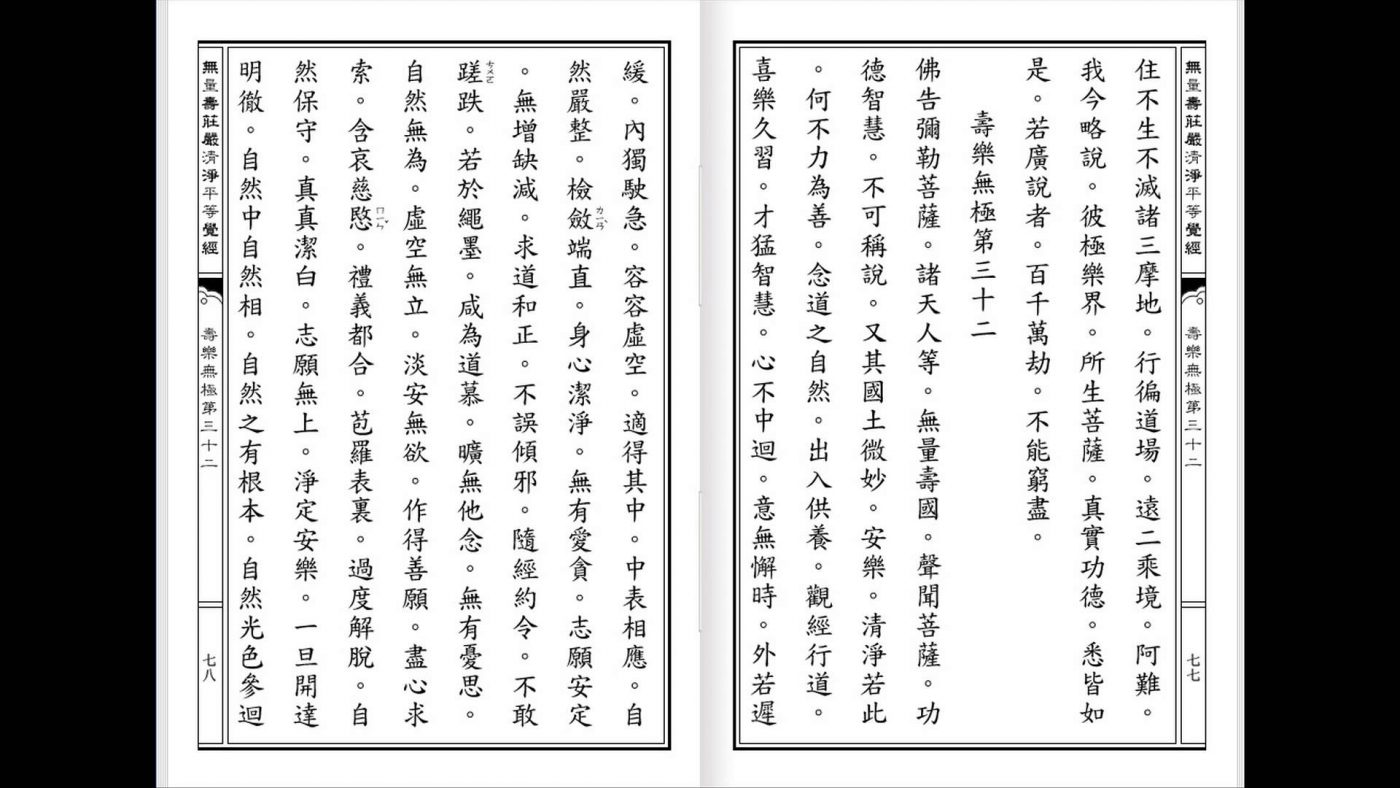 無量壽莊嚴清淨平等覺經
壽樂無極第三十二
七七
住不生不滅諸三摩地。行徧道場。遠二乘境。阿難。
我今略說。彼極樂界。所生菩薩。真實功德。悉皆如
是。若廣說者。百千萬劫。不能窮盡。
壽樂無極第三十二
佛告彌勒菩薩。諸天人等。無量壽國。聲聞菩薩。功
德智慧。不可稱說。又其國土微妙。安樂。清淨若此
。何不力為善。念道之自然。出入供養。觀經行道。
喜樂久習。才猛智慧。心不中迴。意無懈時。外若遲
緩。內獨駛急。容容虛空。適得其中。中表相應。自
然嚴整。檢斂端直。身心潔淨。無有愛貪。志願安定
ㄌㄧㄢˋ
。無增缺減。求道和正。不誤傾邪。隨經約令。不敢
蹉跌。若於繩墨。咸為道慕。曠無他念。無有憂思。
ㄘㄨㄛ
自然無為。虛空無立。淡安無欲。作得善願。盡心求
索。含哀慈愍。禮義都合。苞羅表裏。過度解脫。自
ㄇㄧㄣˇ
然保守。真真潔白。志願無上。淨定安樂。一旦開達
明徹。自然中自然相。自然之有根本。自然光色參迴
無量壽莊嚴清淨平等覺經
壽樂無極第三十二
七八